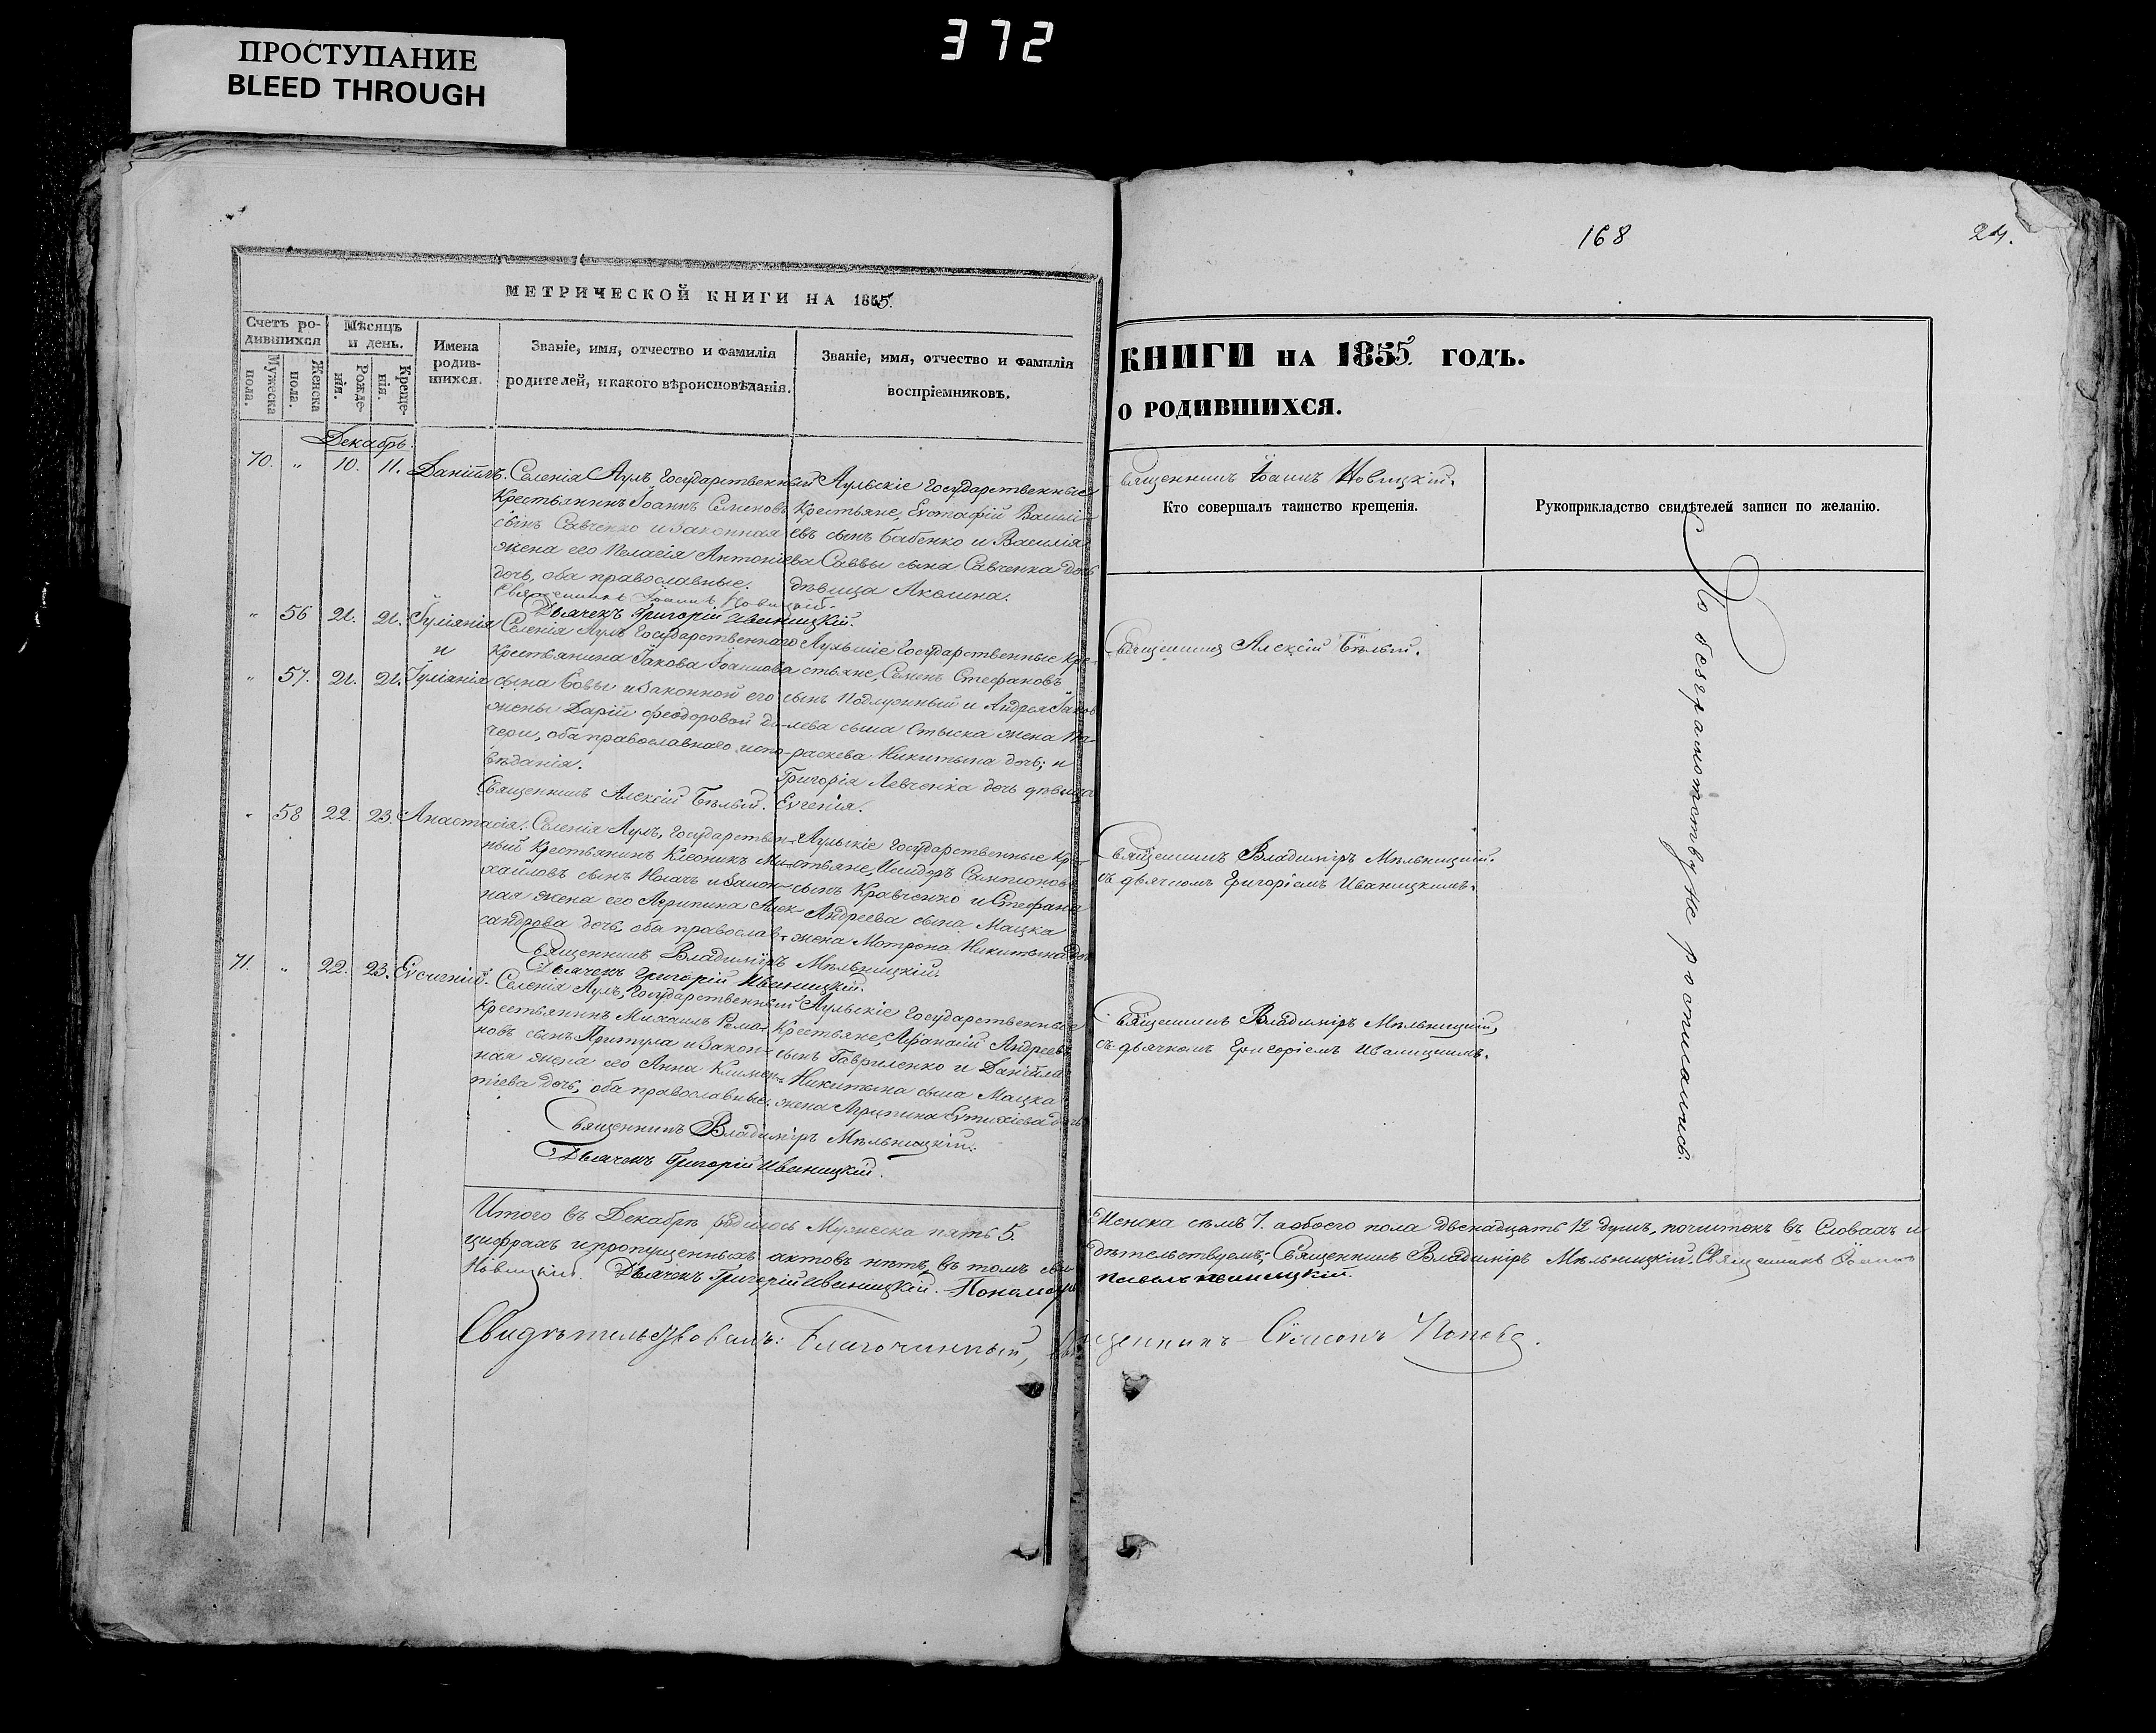 ПРОСТУПАНИЕ
BLEED THROUGH
372
168
24.
МЕТРИЧЕСКОЙ КНИГИ НА 1855.
Счетъ родившихся
Мужеска пола.
Женска пола.
Мѣсяцъ и день.
Рожденія.
Крещенія.
Имена родившихся.
Званіе, имя, отчество и фамилія родителей, и какого вѣроисповѣданія.
Званіе, имя, отчество и фамилія воспріемниковъ.
КНИГИ НА 1855. ГОДЪ.
О РОДИВШИХСЯ.
Кто совершалъ таинство крещенія.
Рукоприкладство свидѣтелей записи по желанію.
Декабрь.
70. „ 10. 11. Даніилъ.
Селенія Аулъ Государственный
Крестьянинъ Іоаннъ Семеновъ
сынъ Савченко и законная
жена его Пелагія Антоніева
дочь, оба православные.
Священникъ Іоаннъ Новицкій.
Дьячекъ Григорій Иваницкій.
Аульскіе Государственные
Крестьяне, Евстафій Василі-
евъ сынъ Бабенко и Василія
Саввы сына Савченка дочь
дѣвица Акилина.
Священникъ Іоаннъ Новицкій.
„ 56 21. 21. Іуліянія
и
„ 57. 21. 21. Іуліанія
Селенія Аулъ Государственнаго
Крестьянина Іакова Іоаннова
сына Бовы и законной его
жены Даріи Феодоровой до-
чери, оба православнаго испо-
вѣданія.
Священникъ Алексій Бѣлый.
Аульскіе Государственные Кре-
стьяне, Семенъ Стефановъ
сынъ Подлужный и Андрея Іаков-
лева сына Стыска жена Па-
раскева Никитина дочь; и
Григорія Левченка дочь дѣвица
Евгенія.
Священникъ Алексій Бѣлый.
„ 58 22. 23. Анастасія.
Селенія Аулъ, Государствен-
ный Крестьянинъ Клеоникъ Ми-
хайловъ сынъ Носачъ и закон-
ная жена его Агрипина Алек-
сандрова дочь, оба православ.
Священникъ Владиміръ Мѣльницкій.
Дьячекъ Григорій Иваницкій.
Аульскіе Государственные Кре-
стьяне, Исидоръ Сампсоновъ
сынъ Кравченко и Стефана
Андреева сына Мацка
жена Мотрона Никитина доч
Священникъ Владиміръ Мѣльницкій.
съ дьячкомъ Григоріемъ Иваницкимъ.
71. „ 22. 23. Евгеній.
Селенія Аулъ, Государственный
Крестьянинъ Михаилъ Рома-
новъ сынъ Притула и закон-
ная жена его Анна Климен-
тіева дочь, оба православные.
Священникъ Владиміръ Мѣльницкій.
Дьячекъ Григорій Иваницкій.
Аульскіе Государственные
Крестьяне, Афанасій Андреевъ
сынъ Гавриленко и Даніила
Никитина сына Мацка
жена Агрипина Евтихіева дочь
Священникъ Владиміръ Мѣльницкій,
съ дьячкомъ Григоріемъ Иваницкимъ.
По безграмотству не росписались.
Итого въ Декабрѣ родилось Мужеска пять 5. Женска семь 7. а обоего пола двенадцать 12 душъ, почистокъ въ словахъ и
цифрахъ и пропущенныхъ актовъ нѣтъ, въ томъ сви-дѣтельствуемъ; Священникъ Владиміръ Мѣльницкій. Священникъ Іоаннъ
Новицкій. Дьячекъ Григорій Иваницкій. Пономарь
Свидѣтельствовалъ: Благочинный, Священникъ Сѵмеонъ Поповъ.